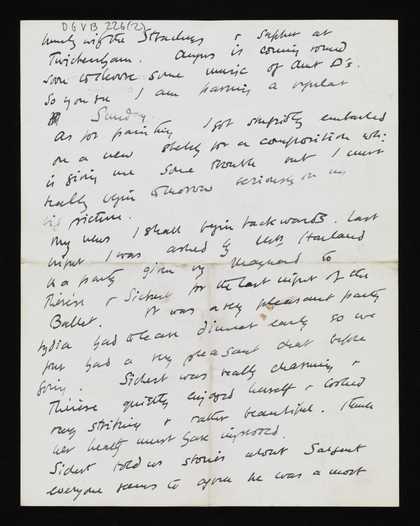 DGVB 226(2)
with the Stracheys & Sapho at
Twickenham. Angus is coming round
soon to choose some music of Aunt D's.
So you see I am passing a regular
Sunday.
As for painting I got stupidly embarked
on a new sketch for a composition whi:
is giving me some trouble but I must
really begin tomorrow seriously on my
big picture.
My news I shall begin backwards. Last
night I was asked by Harland
to a party given by Maynard to
Thérèse & Sickert for the last night of the
Ballet. It was a very pleasant party
Lydia had to leave dinner early so we
just had a very pleasant chat before
going. Sickert was really charming &
Thérèse quietly enjoyed herself & looked
very striking & rather beautiful. I think
her health must have improved.
Sickert told us stories about Sargent
everyone seems to agree he was a most